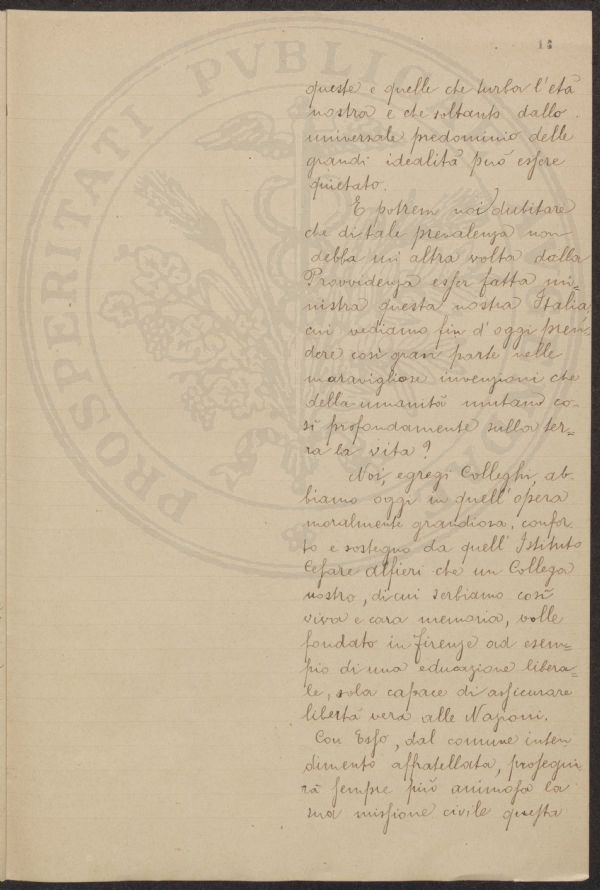 14
queste e quelle che turba l'età
nostra e che soltanto dallo
universale predominio delle
grandi idealità può essere
quietato.
E potrem noi dubitare
che di tale prevalenza non
debba un'altra volta dalla
Provvidenza esser fatta mi=
nistra questa nostra Italia,
cui vediamo fin d'oggi pren=
dere così gran parte nelle
maravigliose invenzioni che
della umanità mutano co-
sì profondamente sulla ter=
ra la vita?
Noi, egregi Colleghi, ab-
biamo oggi in quell'opera
moralmente grandiosa, confor-
to e sostegno da quell'Istituto
Cesare Alfieri che un Collega
nostro, di cui serbiamo così
viva e cara memoria, volle
fondato in Firenze ad esem=
pio di una educazione libera=
le, sola capace di assicurare
libertà vera alle Nazioni.
Con Esso, dal comune inten-
dimento affratellata, prosegui-
rà sempre più animosa la
sua missione civile questa
PROSPERITATI PVBLICAE